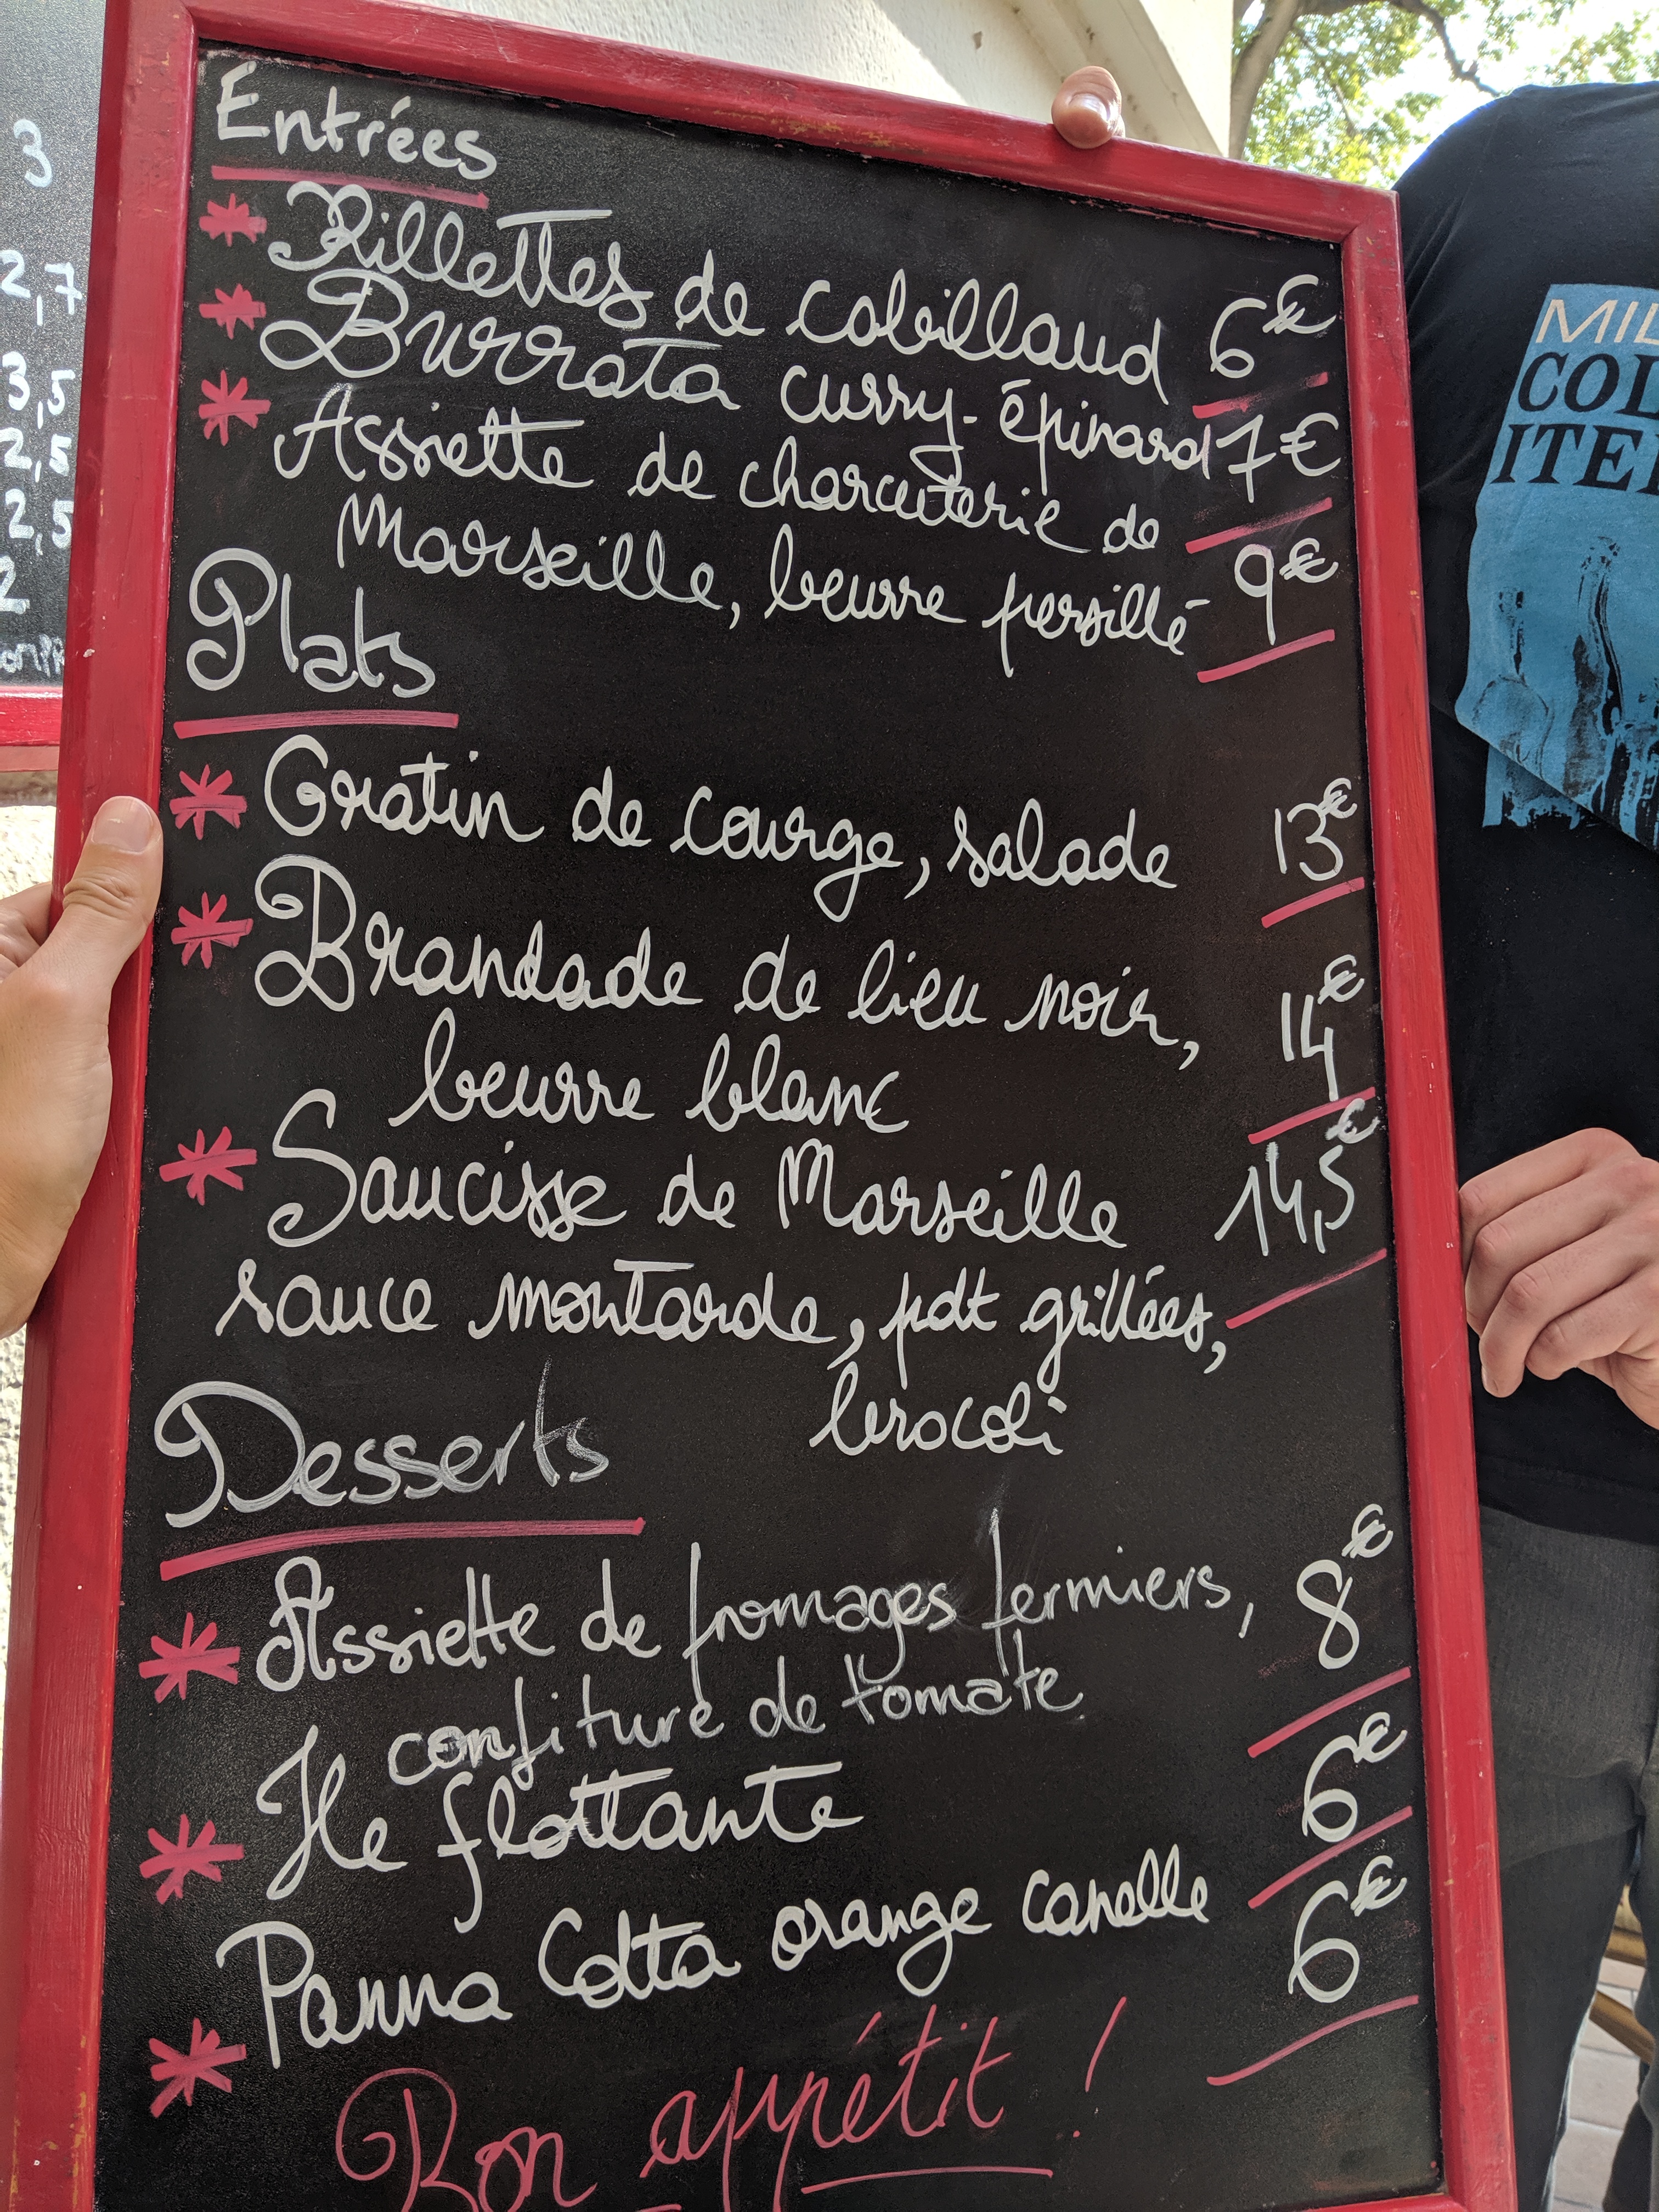 Entrées
Rillettes de cabillaud 6€
Burrata curry-épinard 7€
Assiette de charcuterie de
Marseille, beurre persillé 9€
Plats
Gratin de courge, salade 13€
Brandade de lieu noir, 14€
beurre blanc
Saucisse de Marseille 14,5€
sauce moutarde, pdt grillées,
brocoli
Desserts
Assiette de fromages fermiers, 8€
confiture de tomate
Ile flottante 6€
Panna Cotta orange canelle 6€
Bon appétit !
3
2,7
3,5
2,5
2,5
2
MIL
COL
ITE